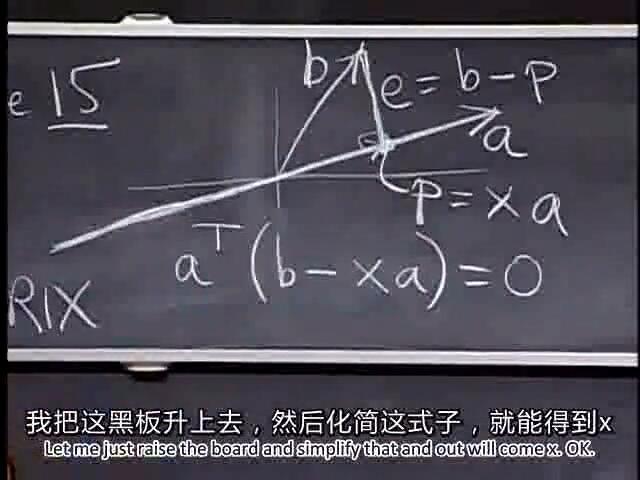 e 15
b
e = b - P
a
P = x a
aᵀ (b - xa) = 0
RIX
我把这黑板升上去，然后化简这式子，就能得到x
Let me just raise the board and simplify that and out will come x. OK.